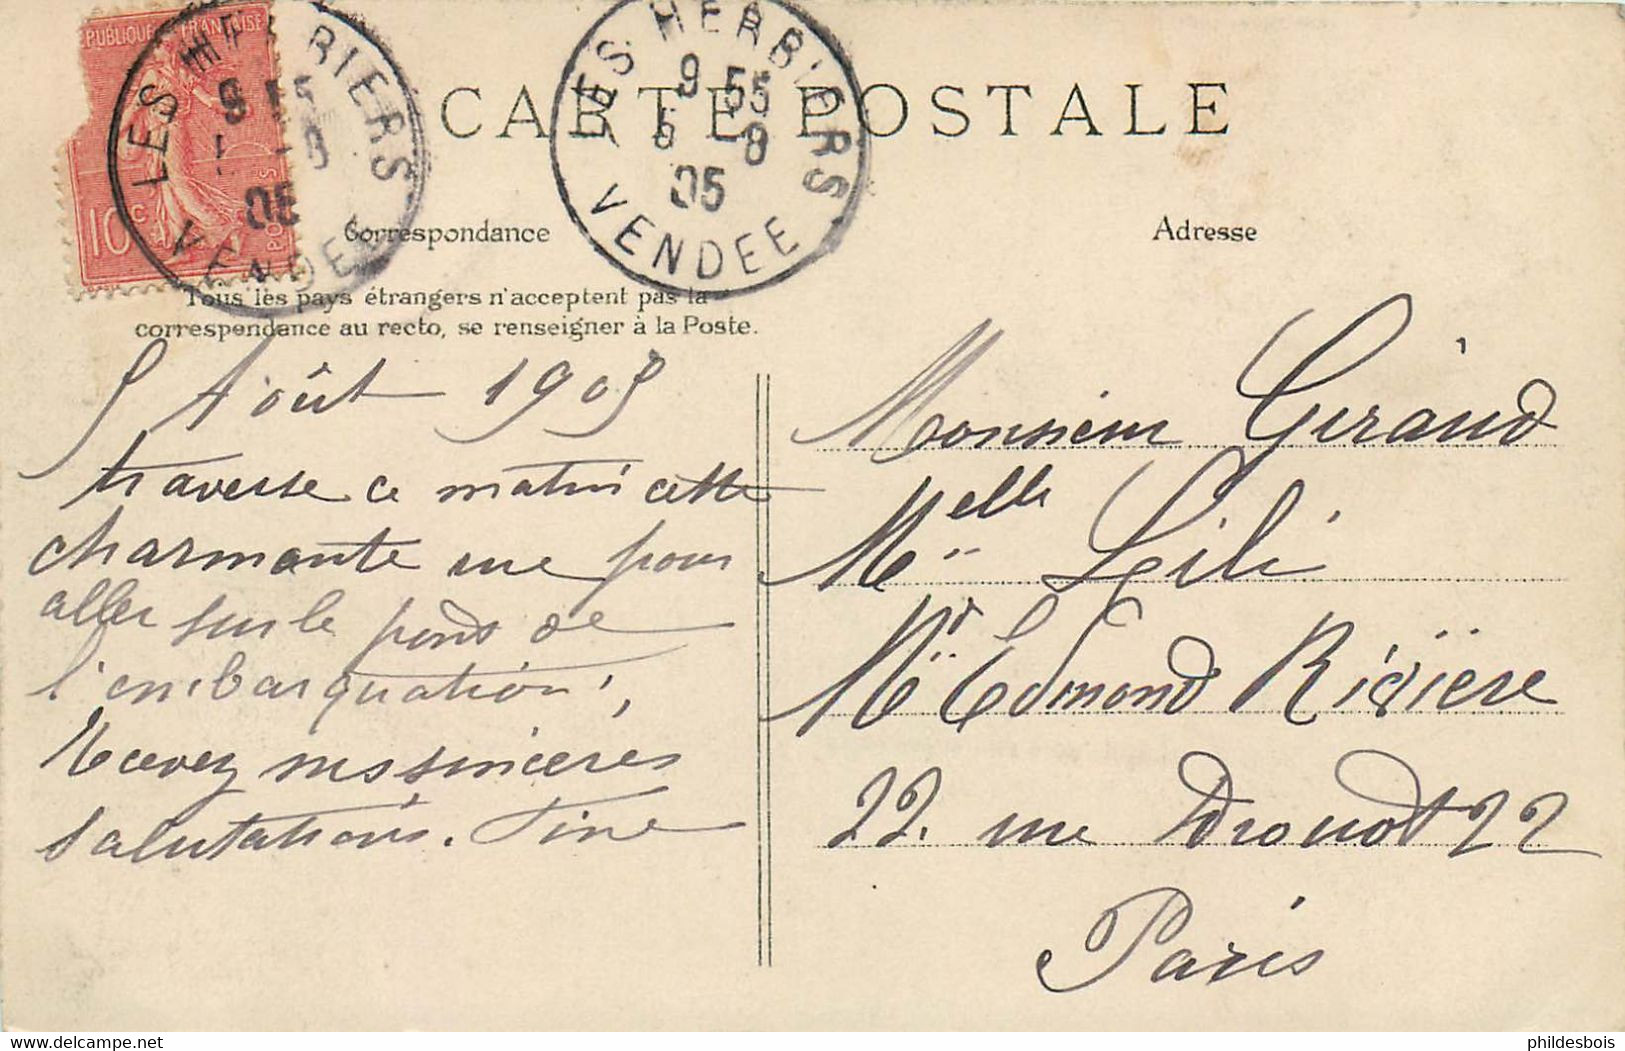 RÉPUBLIQUE FRANÇAISE
10c
POSTES
LES HERBIERS
9 55
5 -8
05
VENDEE
LES HERBIERS
9 55
5 -8
05
VENDEE
CARTE POSTALE
Correspondance
Adresse
Tous les pays étrangers n'acceptent pas la
correspondance au recto, se renseigner à la Poste.
5 Août 1905
traverse ce matin cette
charmante rue pour
aller sur le pont de
l'embarquation,
Recevez nos sincères
salutations. Tine
Monsieur Giraud
Melle Lili
Mr Edmond Rivière
22. rue Drouot 22
Paris
phildesbois